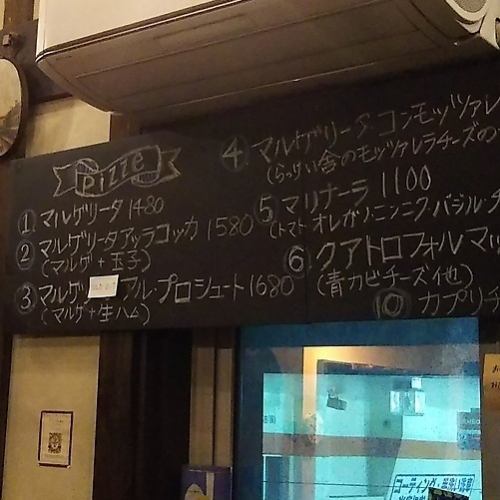 Pizze
① マルゲリータ 1480
② マルゲリータアッラコッカ 1580
(マルゲ+玉子)
③ マルゲ アル・プロシュート 1680
(マルゲ+生ハム)
④ マルゲリータ・コンモッツァレ
(らっけい舎のモッツァレラチーズの
⑤ マリナーラ 1100
(トマト オレガノ・ニンニク・バジル・
⑥ クアトロフォルマッ
(青カビチーズ他)
⑩ カプリチ
コーティング・手洗い洗車